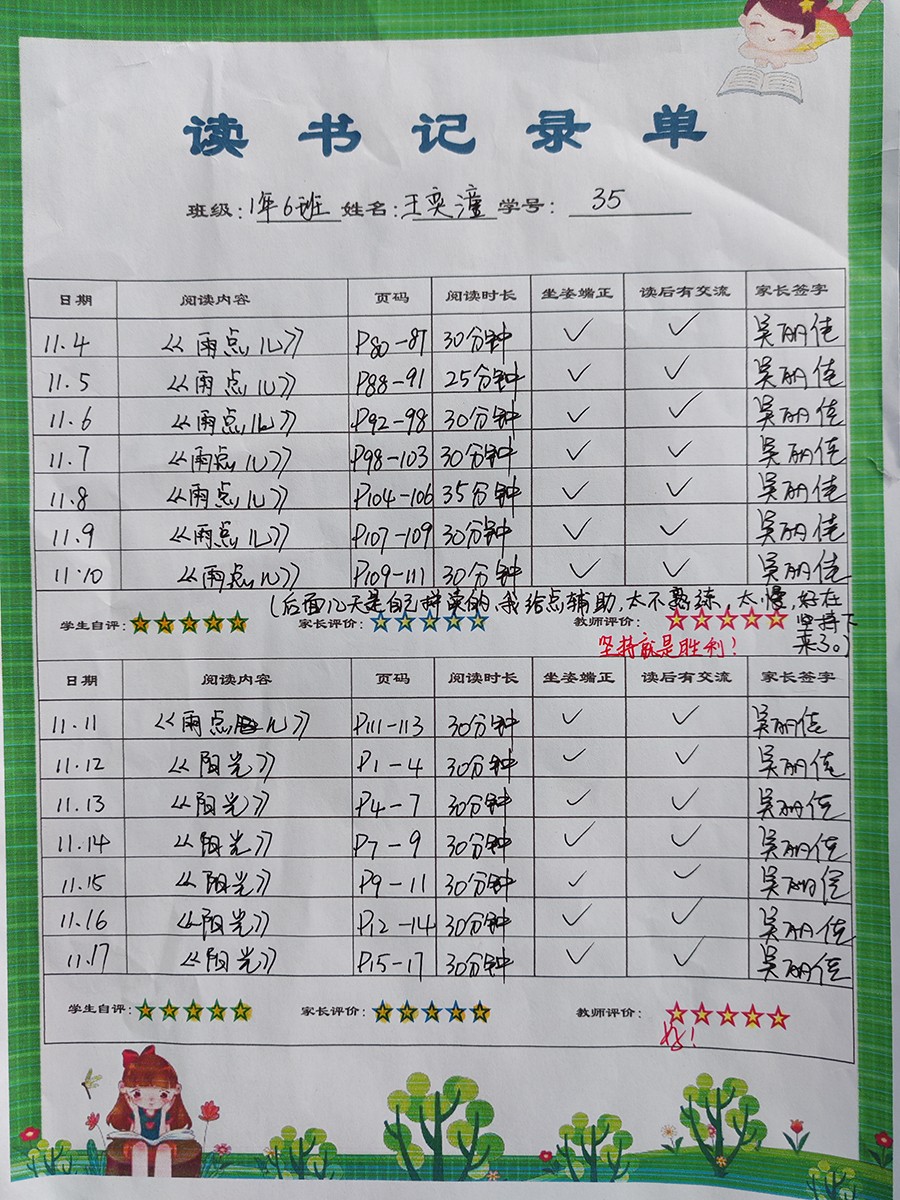 读书记录单
班级:1年6班 姓名:王奕潼 学号:35
日期 阅读内容 页码 阅读时长 坐姿端正 读后有交流 家长签字
11.4 《雨点儿》 P80-87 30分钟 ✓ ✓ 吴丽佳
11.5 《雨点儿》 P88-91 25分钟 ✓ ✓ 吴丽佳
11.6 《雨点儿》 P92-98 30分钟 ✓ ✓ 吴丽佳
11.7 《雨点儿》 P98-103 30分钟 ✓ ✓ 吴丽佳
11.8 《雨点儿》 P104-106 35分钟 ✓ ✓ 吴丽佳
11.9 《雨点儿》 P107-109 30分钟 ✓ ✓ 吴丽佳
11.10 《雨点儿》 P109-111 30分钟 ✓ ✓ 吴丽佳
(后面几天是自己拼读的,我给点辅助,太不熟练,太慢,好在
坚持下
来了。)
学生自评: 家长评价: 教师评价:
坚持就是胜利!
日期 阅读内容 页码 阅读时长 坐姿端正 读后有交流 家长签字
11.11 《雨点儿》 P111-113 30分钟 ✓ ✓ 吴丽佳
11.12 《阳光》 P1-4 30分钟 ✓ ✓ 吴丽佳
11.13 《阳光》 P4-7 30分钟 ✓ ✓ 吴丽佳
11.14 《阳光》 P7-9 30分钟 ✓ ✓ 吴丽佳
11.15 《阳光》 P9-11 30分钟 ✓ ✓ 吴丽佳
11.16 《阳光》 P12-14 30分钟 ✓ ✓ 吴丽佳
11.17 《阳光》 P15-17 30分钟 ✓ ✓ 吴丽佳
学生自评: 家长评价: 教师评价:
好!